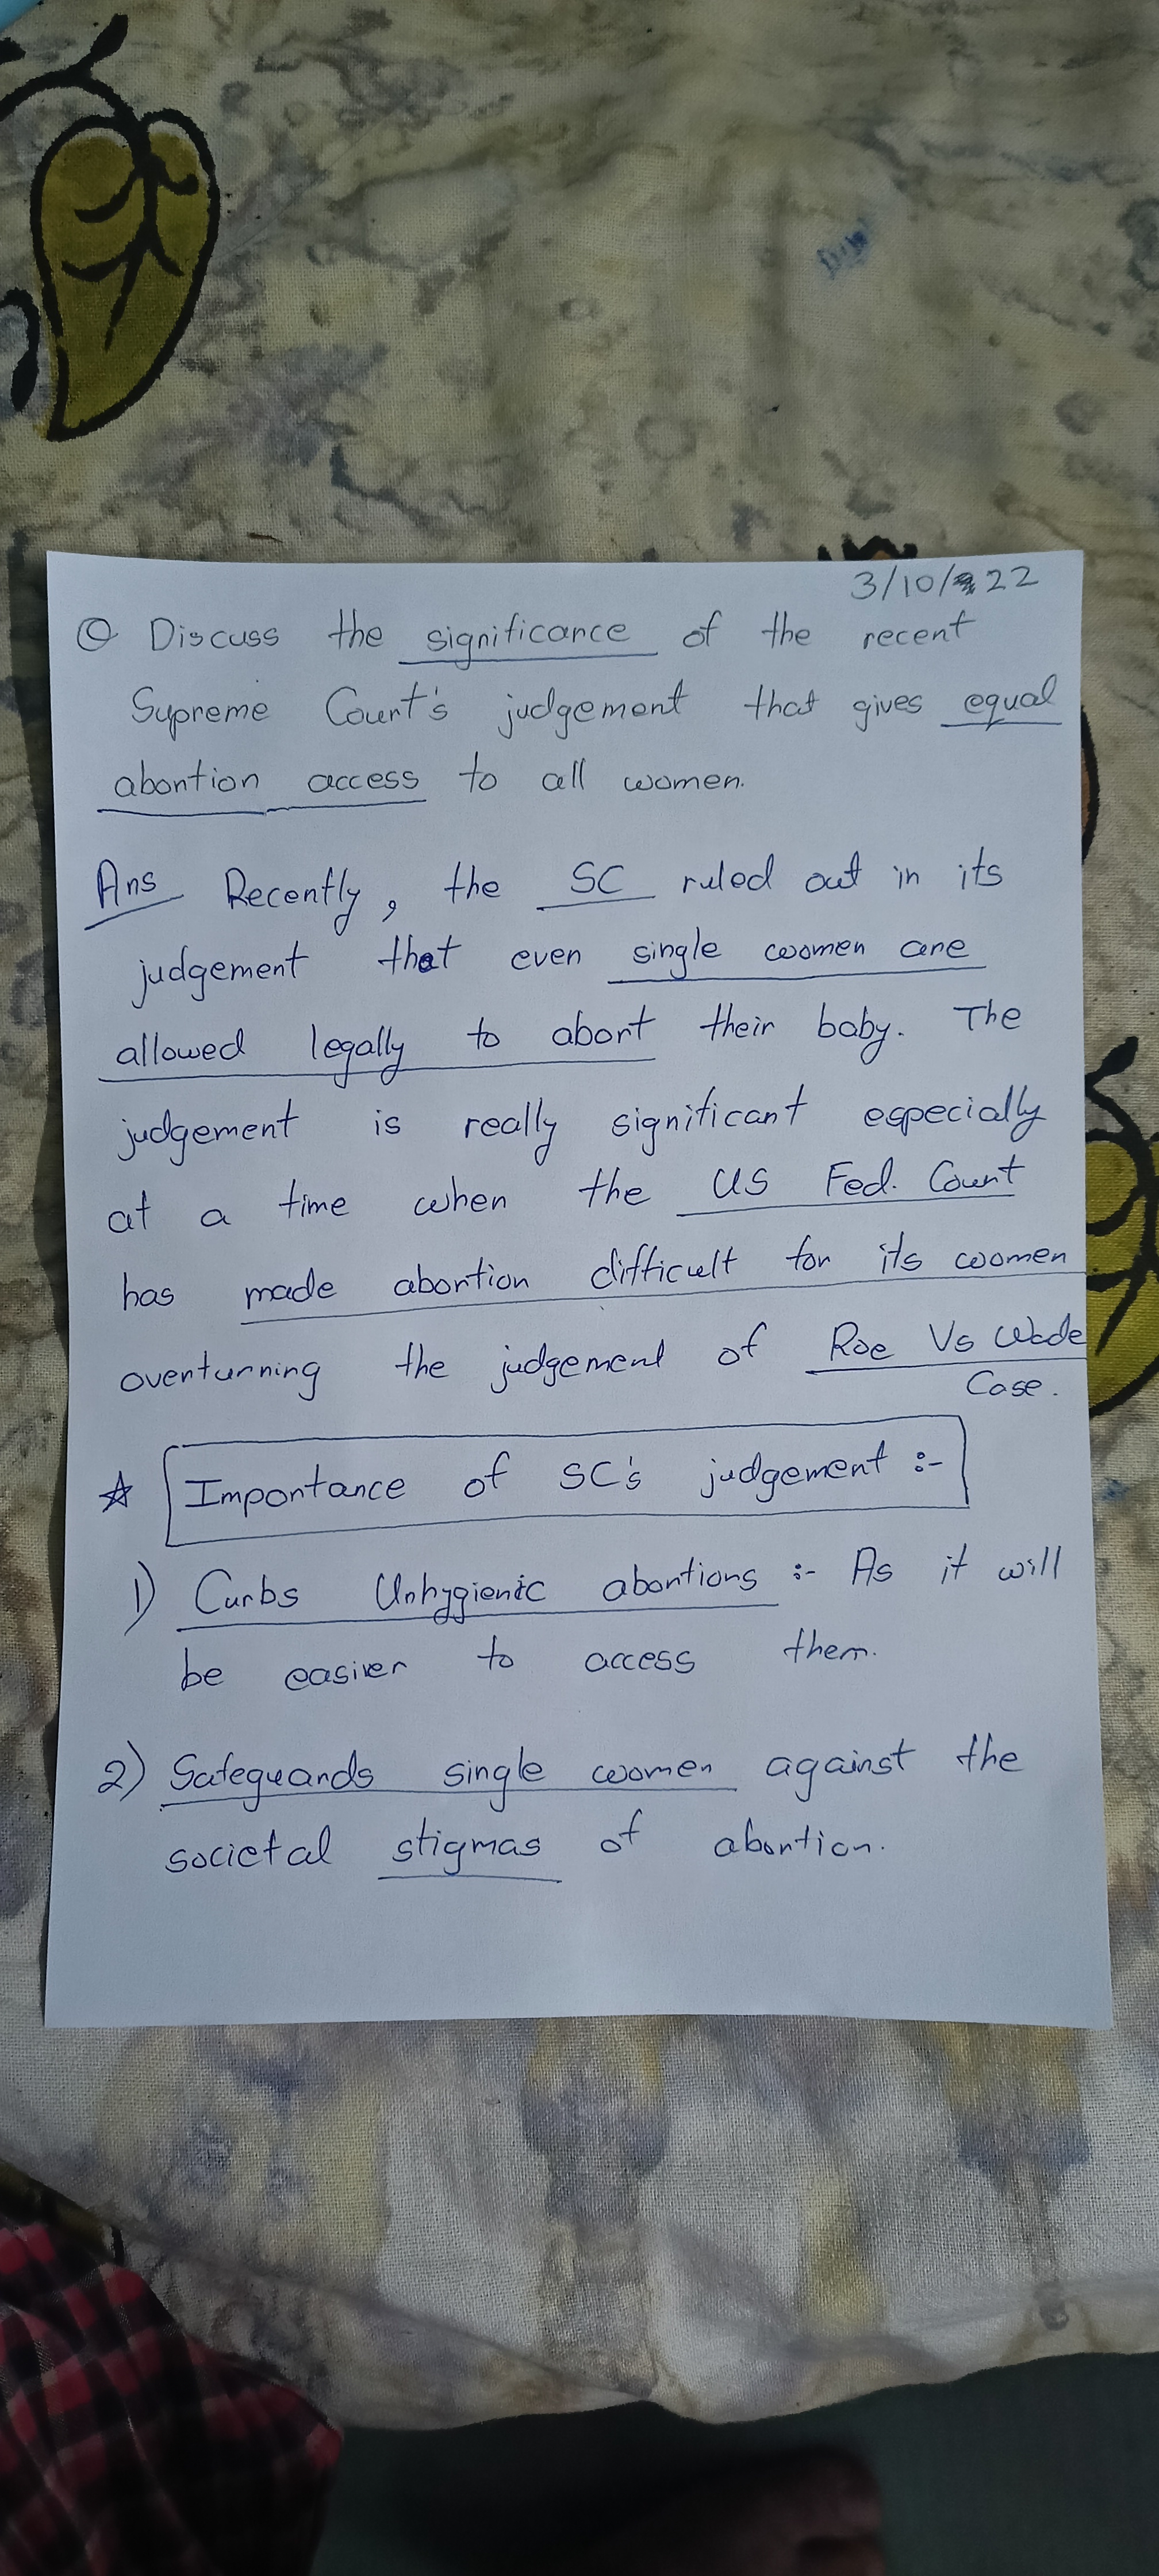 3/10/22
Q Discuss the significance of the recent
Supreme Court's judgement that gives equal
abortion access to all women.
Ans Recently, the SC ruled out in its
judgement that even single women are
allowed legally to abort their baby. The
judgement is really significant especially
at a time when the US Fed. Court
has made abortion difficult for its women
overturning the judgement of Roe Vs Wade
Case.
☆ Importance of SC's judgement :-
1) Curbs Unhygienic abortions :- As it will
be easier to access them.
2) Safeguards single women against the
societal stigmas of abortion.